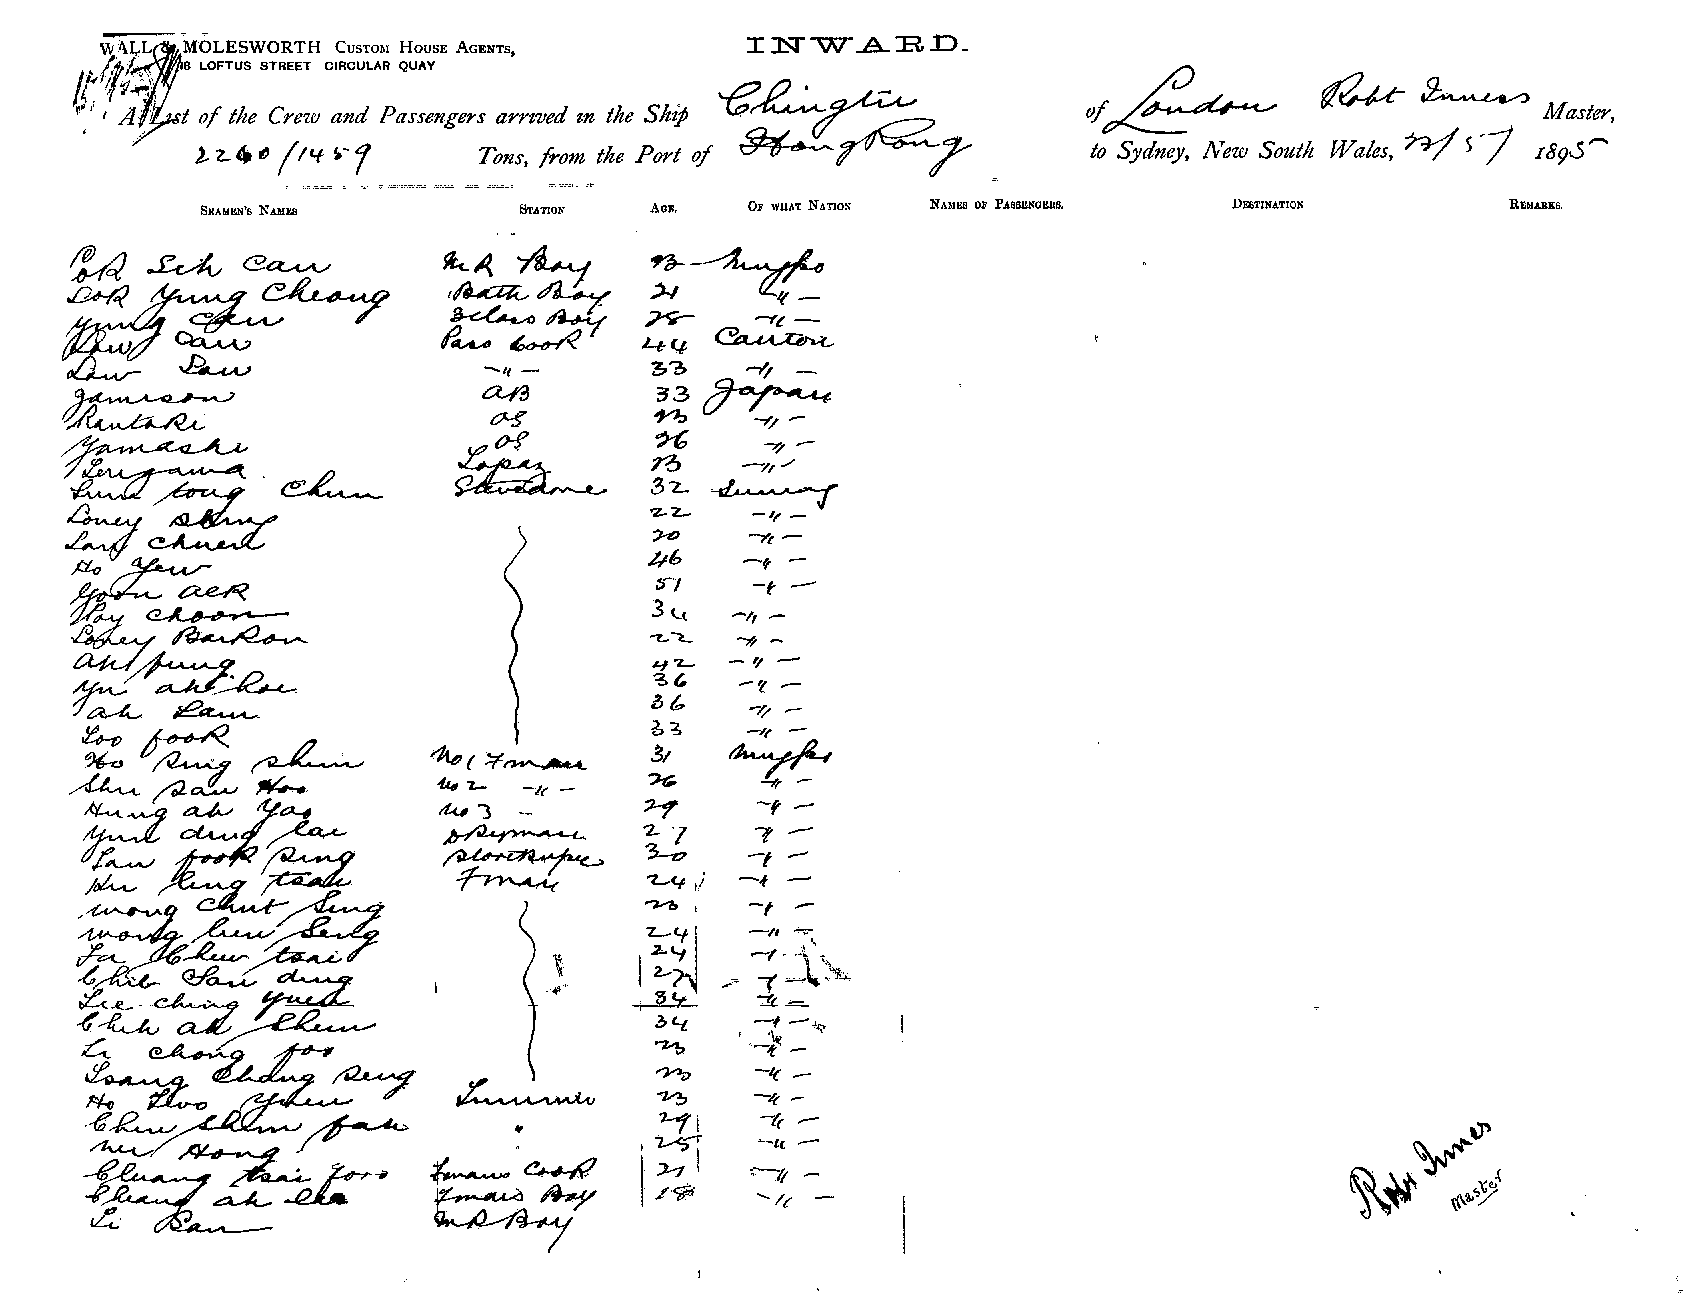 WALL & MOLESWORTH CUSTOM HOUSE AGENTS,
INWARD.
18 LOFTUS STREET CIRCULAR QUAY
A List of the Crew and Passengers arrived in the Ship Chingtu of London Robt Inness Master,
2260/1459 Tons, from the Port of Hong Kong to Sydney, New South Wales, 22/5/ 1895
SEAMEN'S NAMES STATION AGE. OF WHAT NATION NAMES OF PASSENGERS. DESTINATION REMARKS.
Sih Can M R Boy 23 Ningpo
Yung Cheong Bath Boy 21 -"-
Yung Can 3 Class Boy 28 -"-
Can Pass Cook 44 Canton
Law San -"- 33 -"-
Jamison AB 33 Japan
Kantaki OS 23 -"-
Yamashi OS 26 -"-
Lopaz 23 -"-
tong Chun Stevedore 32 Sunning
Loney 22 -"-
Chuen 20 -"-
Ho Yew 46 -"-
51 -"-
Hoy Choon 34 -"-
Loney Barkon 22 -"-
Ah fung 42 -"-
Yu ah hoe 36 -"-
Ah Lam 36 -"-
Loo fook 33 -"-
Ho Sing Shun No 1 Fman 31 Ningpo
Shu San Hoo No 2 -"- 26 -"-
Hung ah Yao No 3 - 29 -"-
Yun ding lai Dkyman 27 -"-
San fook Sing Storekeeper 30 -"-
Hu ling tsai Fman 24 -"-
Wong Chut Sing 23 -"-
Wong lien Seng 24 -"-
Chew tsai 24 -"-
Chih San ding 27 -"-
Lie Ching Yuen 34 -"-
Chih ah Shun 34 -"-
Li Chong foo 23 -"-
Tsang Chang Seng 23 -"-
Ho Yuen Trimmer 23 -"-
Chiu Shun fah " 29 -"-
Hong 25 -"-
Chuang tsai foo Fmans Cook 21 -"-
Chuang ah Fmans Boy 18 -"-
Li San M R Boy
Robt Innes
Master